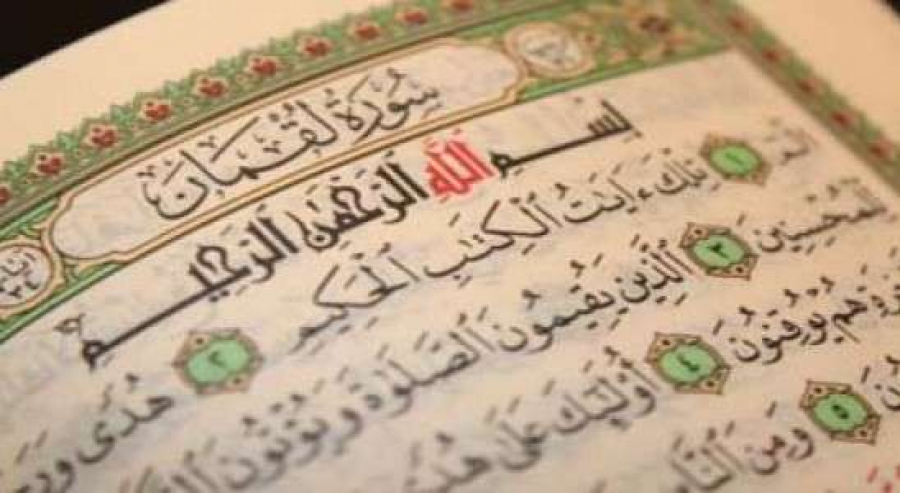 سُورَةُ لُقْمَان
بِسْمِ اللَّهِ الرَّحْمَٰنِ الرَّحِيمِ
الٓمٓ ١ تِلْكَ ءَايَٰتُ ٱلْكِتَٰبِ ٱلْحَكِيمِ ٢ هُدًى
لِّلْمُحْسِنِينَ ٣ ٱلَّذِينَ يُقِيمُونَ ٱلصَّلَوٰةَ وَيُؤْتُونَ
هُمْ يُوقِنُونَ ٤ أُو۟لَٰٓئِكَ عَلَىٰ هُدًى
٥ وَمِنَ ٱلنَّاسِ